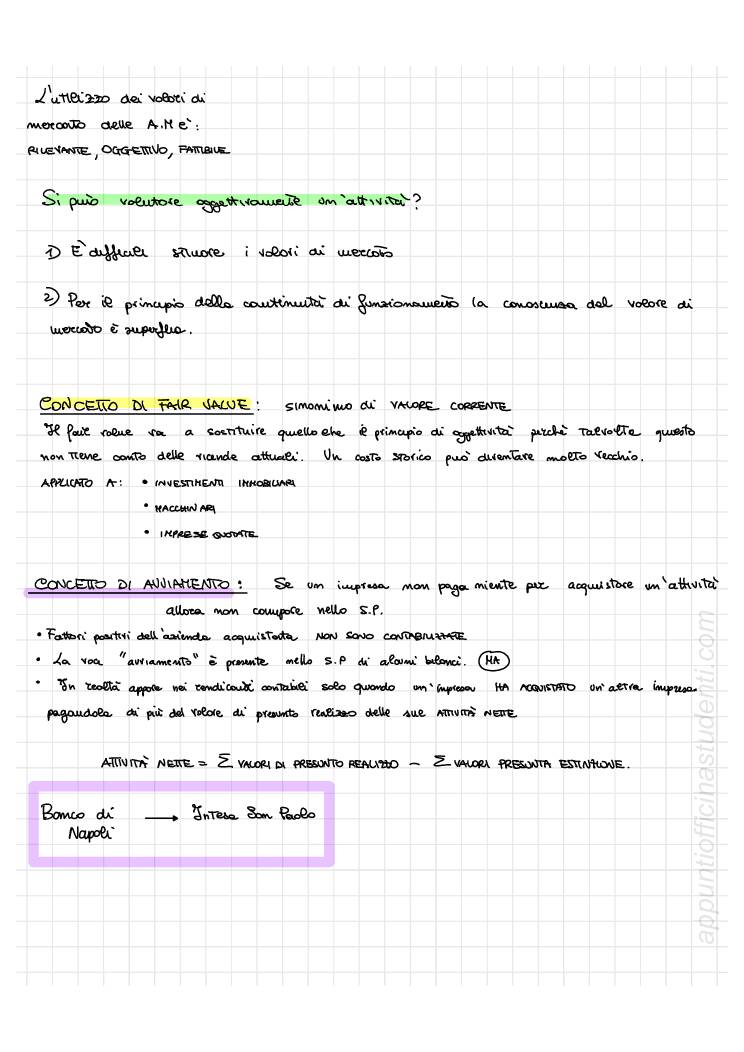 L'utilizzo dei valori di
mercato delle A.M è:
RILEVANTE, OGGETTIVO, FATTIBILE
Si può valutare oggettivamente un'attività?
1) È difficile stimare i valori di mercato
2) Per il principio della continuità di funzionamento la conoscenza del valore di
mercato è superflua.
CONCETTO DI FAIR VALUE: sinonimo di VALORE CORRENTE
Il fair value va a sostituire quello che è principio di oggettività perché talvolta questo
non tiene conto delle vicende attuali. Un costo storico può diventare molto vecchio.
APPLICATO A: • INVESTIMENTI IMMOBILIARI
• MACCHINARI
• IMPRESE QUOTATE
CONCETTO DI AVVIAMENTO: Se un impresa non paga niente per acquistare un'attività
allora non compare nello S.P.
• Fattori positivi dell'azienda acquistata NON SONO CONTABILIZZATE
• La voce "avviamento" è presente nello S.P di alcuni bilanci. MA
• In realtà appare nei rendiconti contabili solo quando un'impresa HA ACQUISTATO un'altra impresa
pagandola di più del valore di presunto realizzo delle sue ATTIVITÀ NETTE
ATTIVITÀ NETTE = Σ VALORI DI PRESUNTO REALIZZO - Σ VALORI PRESUNTA ESTINZIONE.
Banco di → Intesa San Paolo
Napoli
appuntiofficinastudenti.com